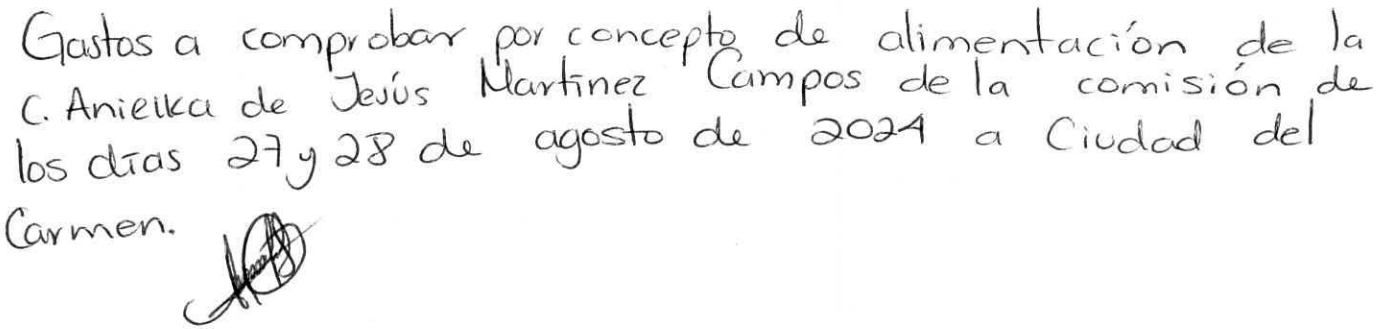 Gastos a comprobar por concepto de alimentación de la
C. Anielka de Jesús Martinez Campos de la comisión de
los días 27 y 28 de agosto de 2024 a Ciudad del
Carmen.